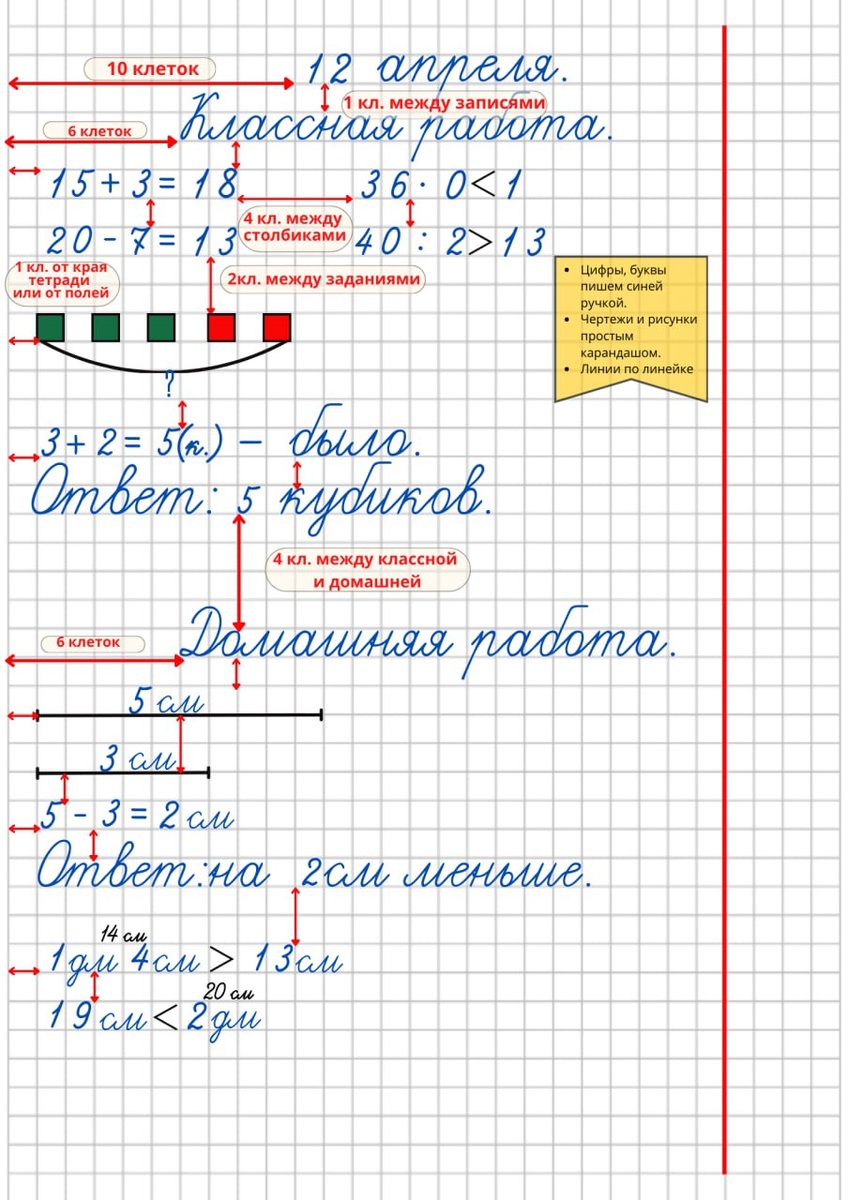 10 клеток
12 апреля.
1 кл. между записями
6 клеток
Классная работа.
15 + 3 = 18
36 · 0 < 1
4 кл. между
столбиками
20 - 7 = 13
40 : 2 > 13
1 кл. от края
тетради
или от полей
2кл. между заданиями
• Цифры, буквы
пишем синей
ручкой.
• Чертежи и рисунки
простым
карандашом.
• Линии по линейке
?
3 + 2 = 5(к.) – было.
Ответ: 5 кубиков.
4 кл. между классной
и домашней
6 клеток
Домашняя работа.
5 см
3 см
5 - 3 = 2 см
Ответ:на 2см меньше.
14 см
1дм 4см > 13см
20 см
19 см < 2дм